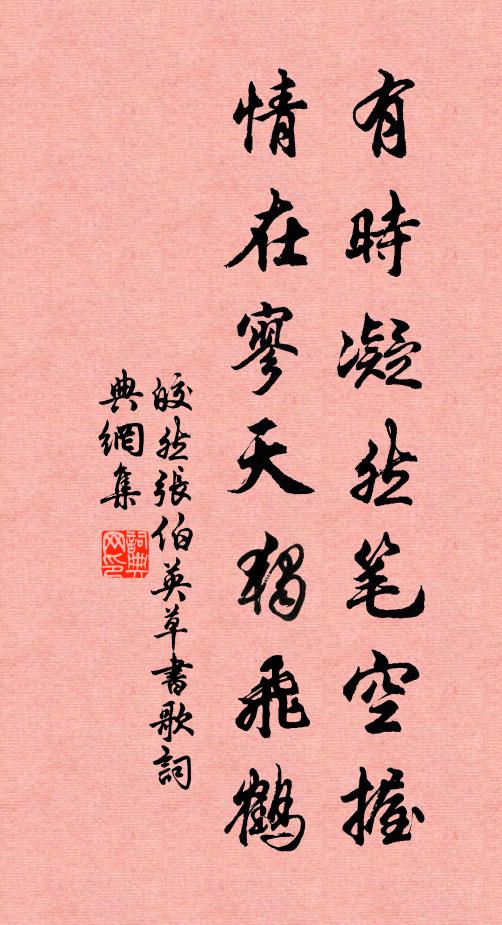 有時凝然笔空握
情在寥天獨飛鶴
皎然張伯英草書歌詞
典網集
詞典网印